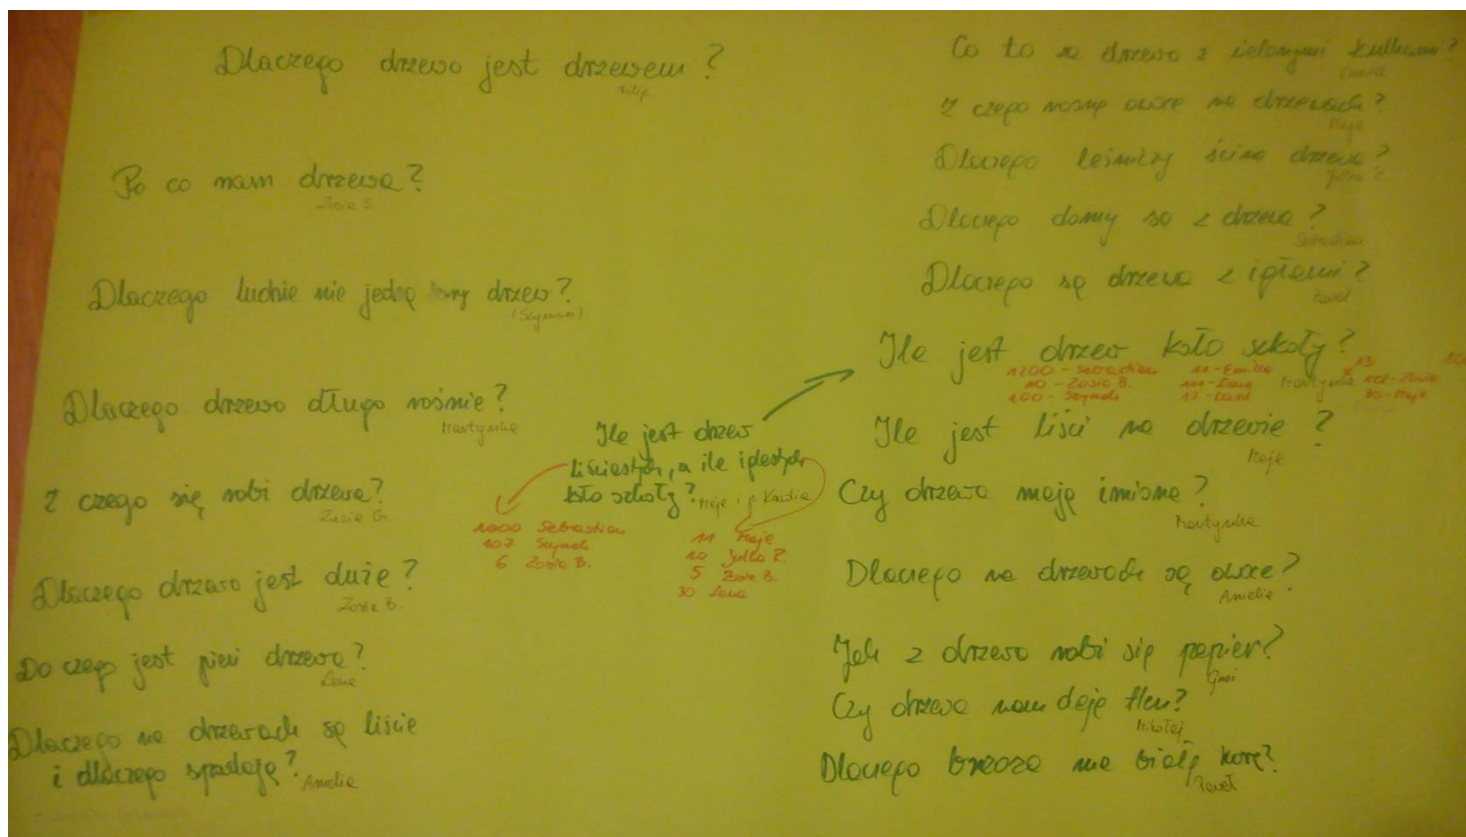 Dlaczego drzewo jest drzewem?
Filip
Po co nam drzewa?
Zosia S.
Dlaczego ludzie nie jedzą kory drzew?
(Szymon)
Dlaczego drzewo długo rośnie?
Martynka
Z czego się robi drzewa?
Zuzia G.
Dlaczego drzewo jest duże?
Zosia B.
Do czego jest pień drzewa?
Lena
Dlaczego na drzewach są liście
i dlaczego spadają?
Amelia
Ile jest drzew
liściastych, a ile iglastych
koło szkoły?
Maja i p. Karolina
1000 Sebastian
107 Szymek
6 Zosia B.
11 Maja
10 Julka Z.
5 Zosia B.
30 Lena
Co to są drzewa z zielonymi kulkami?
Dawid
Z czego rosną owoce na drzewach?
Maja
Dlaczego leśniczy ścina drzewa?
Julka Z.
Dlaczego domy są z drzewa?
Sebastian
Dlaczego są drzewa z igłami?
Paweł
Ile jest drzew koło szkoły?
Martynka
1200 - Sebastian
10 - Zosia B.
100 - Szymek
11 - Emilka
12 - Dawid
13
102 - Zosia
70 - Maja
Ile jest liści na drzewie?
Maja
Czy drzewa mają imiona?
Martynka
Dlaczego na drzewach są owoce?
Amelia
Jak z drzewa robi się papier?
Gniś
Czy drzewa nam dają tlen?
Mikołaj
Dlaczego brzoza ma białą korę?
Paweł